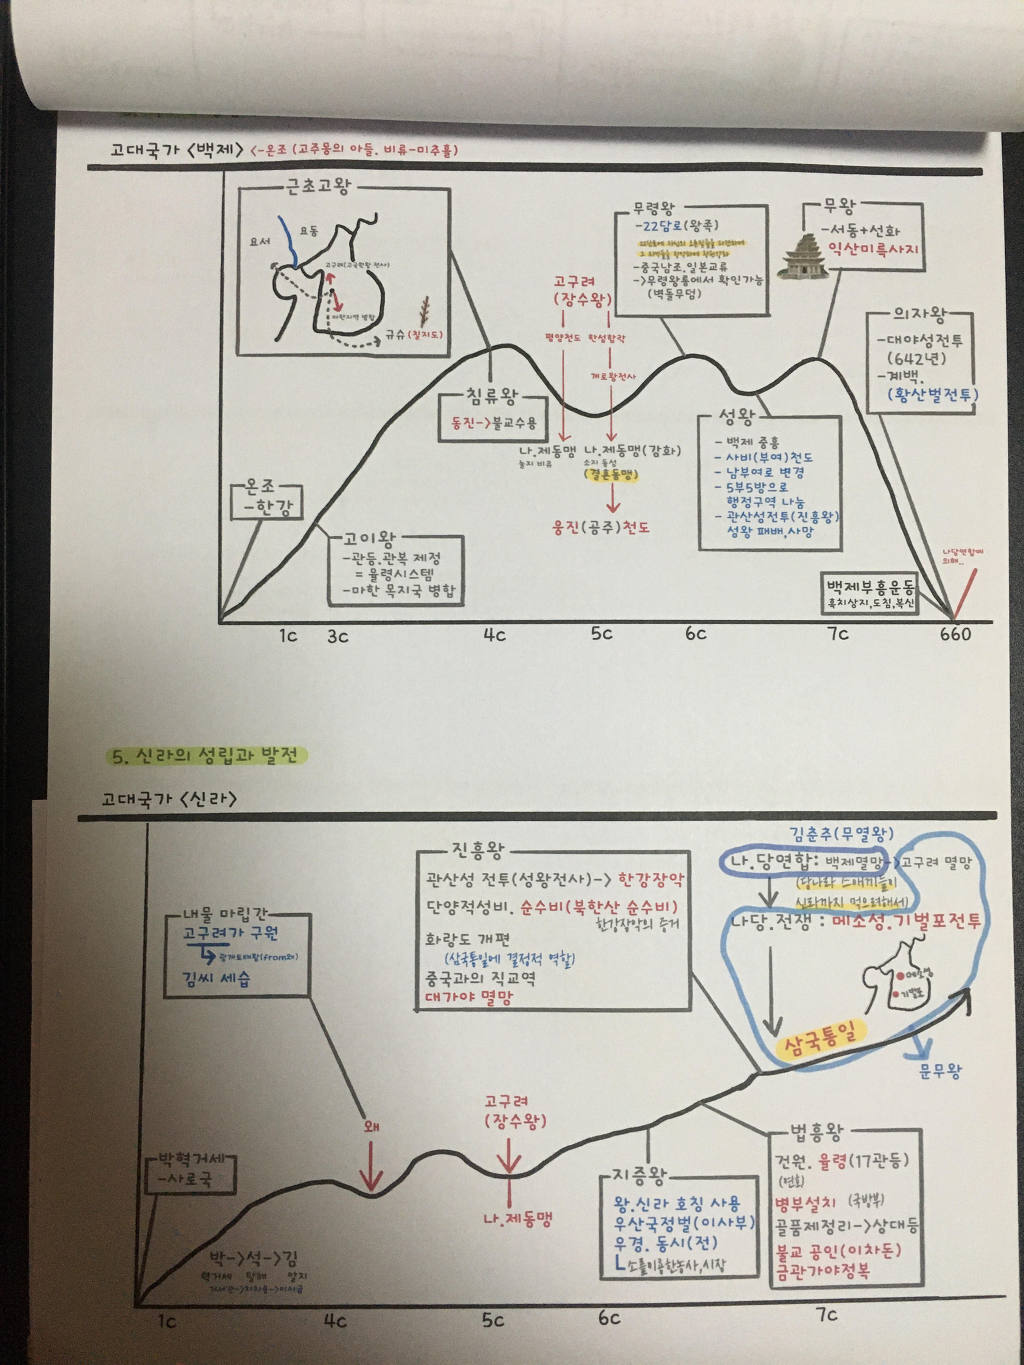 고대국가 <백제> <-온조 (고주몽의 아들. 비류-미추홀)
근초고왕
요서
요동
고구려(고국원왕 전사)
마한지역 병합
규슈 (칠지도)
침류왕
동진->불교수용
온조
-한강
고이왕
-관등.관복 제정
= 율령시스템
-마한 목지국 병합
고구려
(장수왕)
평양천도 한성함락
개로왕전사
나.제동맹
눌지 비유
나.제동맹(강화)
소지 동성
(결혼동맹)
웅진(공주)천도
무령왕
-22담로(왕족)
-중국남조.일본교류
->무령왕릉에서 확인가능
(벽돌무덤)
성왕
- 백제 중흥
- 사비(부여)천도
- 남부여로 변경
- 5부5방으로
행정구역 나눔
- 관산성전투(진흥왕)
성왕 패배,사망
무왕
-서동+선화
익산미륵사지
의자왕
-대야성전투
(642년)
-계백.
(황산벌전투)
나당연합에
의해..
백제부흥운동
흑치상지,도침,복신
1c 3c 4c 5c 6c 7c 660
5. 신라의 성립과 발전
고대국가 <신라>
박혁거세
-사로국
박->석->김
혁거세 탈해 알지
내물 마립간
고구려가 구원
광개토대왕(from왜)
김씨 세습
왜
고구려
(장수왕)
나.제동맹
진흥왕
관산성 전투(성왕전사)-> 한강장악
단양적성비. 순수비(북한산 순수비)
한강장악의 증거
화랑도 개편
(삼국통일에 결정적 역할)
중국과의 직교역
대가야 멸망
지증왕
왕.신라 호칭 사용
우산국정벌(이사부)
우경. 동시(전)
ㄴ소를이용한농사,시장
법흥왕
건원. 율령(17관등)
(연호)
병부설치 (국방부)
골품제정리->상대등
불교 공인(이차돈)
금관가야정복
김춘추(무열왕)
나.당연합: 백제멸망->고구려 멸망
(당나라 스애끼들이
신라까지 먹으려해서)
나당.전쟁 : 매소성.기벌포전투
매소성
기벌포
삼국통일
문무왕
1c 4c 5c 6c 7c